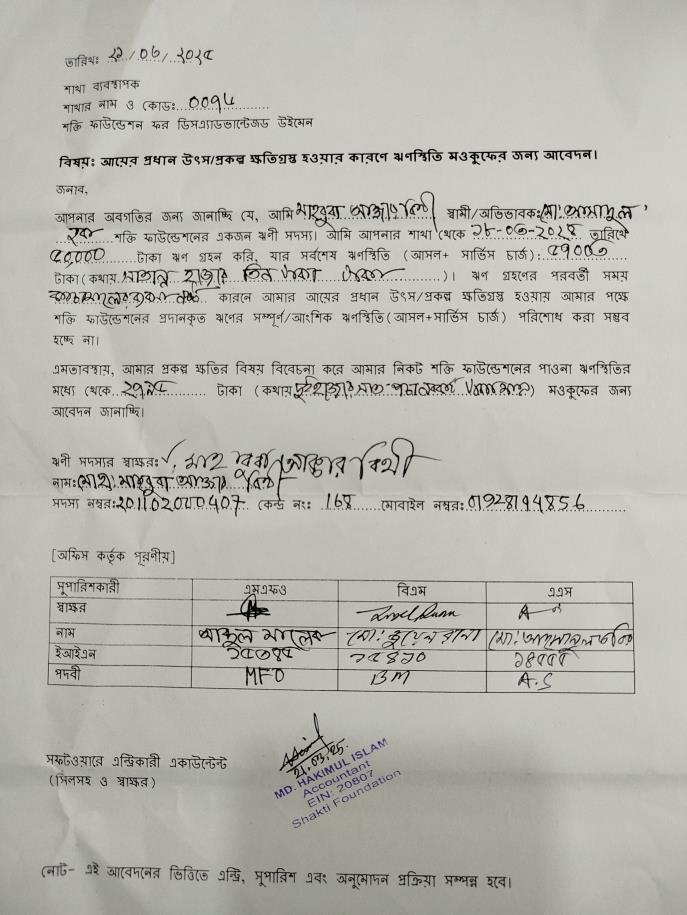 তারিখঃ ২১/০৩/২০২৫
শাখা ব্যবস্থাপক
শাখার নাম ও কোডঃ 0094
শক্তি ফাউন্ডেশন ফর ডিসএ্যাডভান্টেজড উইমেন
বিষয়ঃ আয়ের প্রধান উৎস/প্রকল্প ক্ষতিগ্রস্থ হওয়ার কারণে ঋণস্থিতি মওকুফের জন্য আবেদন।
জনাব,
আপনার অবগতির জন্য জানাচ্ছি যে, আমি মাহবুবা আক্তার বিথী স্বামী/অভিভাবকঃ মো:
হক শক্তি ফাউন্ডেশনের একজন ঋনী সদস্য। আমি আপনার শাখা থেকে ২৮-০৩-২০২৪ তারিখে
৫০,০০০ টাকা ঋণ গ্রহন করি, যার সর্বশেষ ঋণস্থিতি (আসল+ সার্ভিস চার্জ) :
টাকা (কথায় সাতান্ন হাজার তিন টাকা )। ঋণ গ্রহণের পরবর্তী সময়
কারনে আমার আয়ের প্রধান উৎস/প্রকল্প ক্ষতিগ্রস্থ হওয়ায় আমার পক্ষে
শক্তি ফাউন্ডেশনের প্রদানকৃত ঋণের সম্পূর্ণ/আংশিক ঋণস্থিতি(আসল+সার্ভিস চার্জ) পরিশোধ করা সম্ভব
হচ্ছে না।
এমতাবস্থায়, আমার প্রকল্প ক্ষতির বিষয় বিবেচনা করে আমার নিকট শক্তি ফাউন্ডেশনের পাওনা ঋণস্থিতির
মধ্যে থেকে ২৭৯৫ টাকা (কথায় দুই হাজার সাত পচানব্বই টাকা মাত্র) মওকুফের জন্য
আবেদন জানাচ্ছি।
ঋনী সদস্যর স্বাক্ষরঃ মাহবুবা আক্তার বিথী
নামঃ মোছাঃ মাহবুবা আক্তার বিথী
সদস্য নম্বরঃ 201102000407 কেন্দ্র নংঃ 168 মোবাইল নম্বরঃ 01928194856
[অফিস কর্তৃক পূরণীয়]
সুপারিশকারী এমএফও বিএম এএস
স্বাক্ষর
নাম আব্দুল মালেক মো: জুয়েল রানা মো:
ইআইএন ১৫৪১০
পদবী MFO BM A.S
21.03.25
সফটওয়ারে এন্ট্রিকারী একাউন্টেন্ট
(সিলসহ ও স্বাক্ষর)
MD. HAKIMUL ISLAM
Accountant
EIN: 20807
Shakti Foundation
নোট- এই আবেদনের ভিত্তিতে এন্ট্রি, সুপারিশ এবং অনুমোদন প্রক্রিয়া সম্পন্ন হবে।